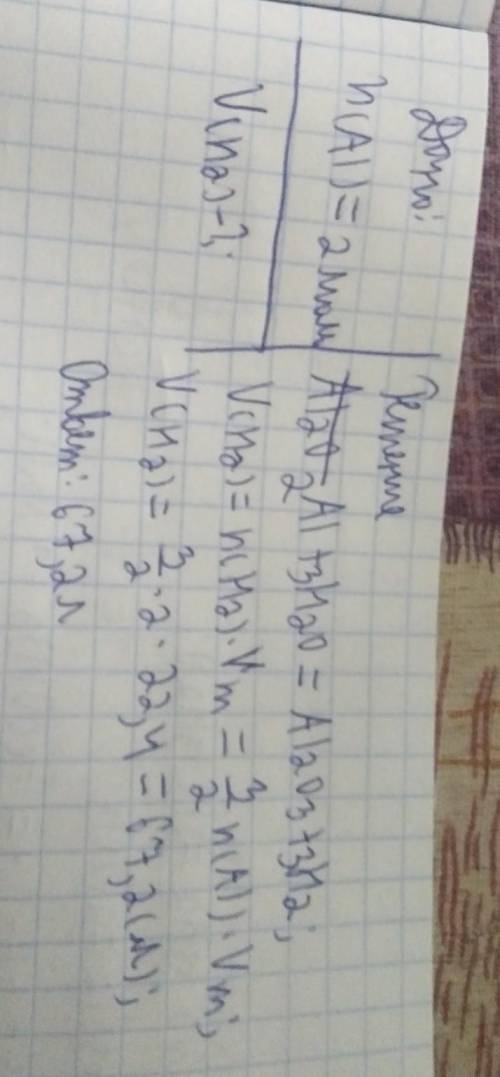 Дано:
n(Al) = 2 моль
V(H2) - ?;
Решение
Al2O 2Al + 3H2O = Al2O3 + 3H2;
V(H2) = n(H2) · Vm = 3/2 n(Al) · Vm;
V(H2) = 3/2 · 2 · 22,4 = 67,2 (л);
Ответ: 67,2 л